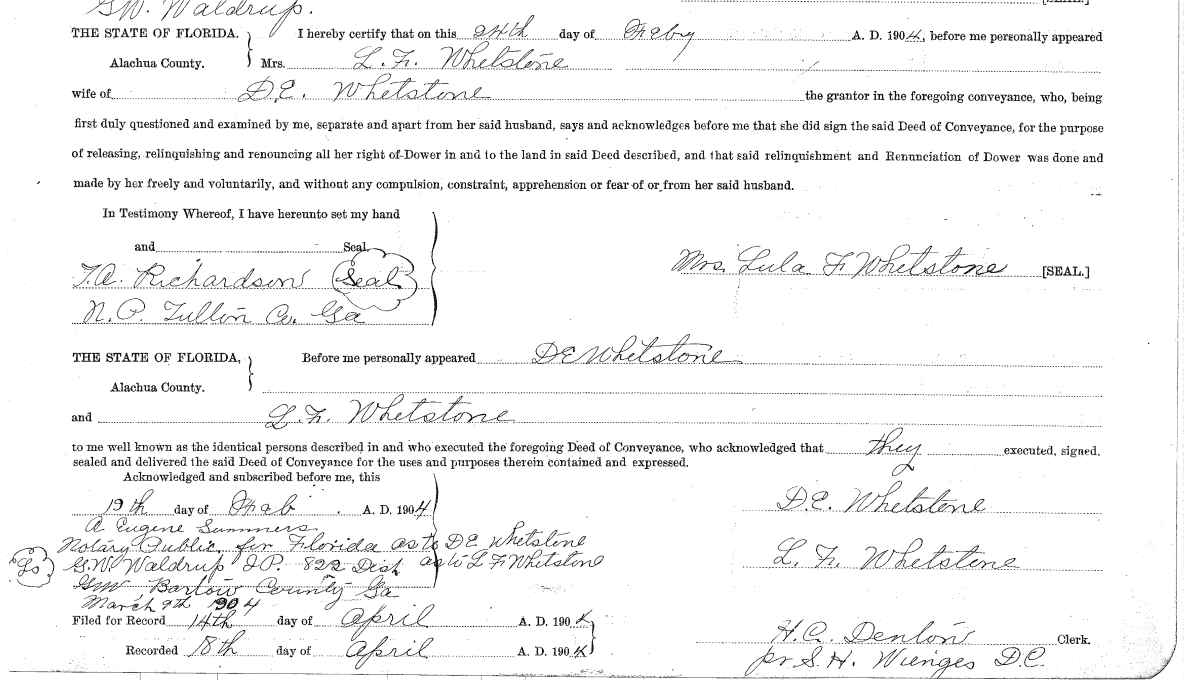 G.W. Waldrup. [SEAL.]
THE STATE OF FLORIDA. } I hereby certify that on this 24th day of Feby A. D. 1904, before me personally appeared
Alachua County. Mrs. L. F. Whetstone
wife of D.E. Whetstone the grantor in the foregoing conveyance, who, being
first duly questioned and examined by me, separate and apart from her said husband, says and acknowledges before me that she did sign the said Deed of Conveyance, for the purpose
of releasing, relinquishing and renouncing all her right of Dower in and to the land in said Deed described, and that said relinquishment and Renunciation of Dower was done and
made by her freely and voluntarily, and without any compulsion, constraint, apprehension or fear of or from her said husband.
In Testimony Whereof, I have hereunto set my hand
and Seal.
T.A. Richardson (Seal) Mrs. Lula F. Whetstone [SEAL.]
N.P. Fulton Co. Ga
THE STATE OF FLORIDA, } Before me personally appeared DE Whetstone
Alachua County.
and L.F. Whetstone
to me well known as the identical persons described in and who executed the foregoing Deed of Conveyance, who acknowledged that they executed, signed,
sealed and delivered the said Deed of Conveyance for the uses and purposes therein contained and expressed.
Acknowledged and subscribed before me, this
19th day of Feb. A. D. 1904 D.E. Whetstone
A Eugene Summers
Notary Public for Florida as to DE Whetstone
Ls G.W. Waldrup J.P. 822 Dist as to L F Whetstone L. F. Whetstone
GM Bartow County Ga
March 9th 1904
Filed for Record 14th day of April A. D. 1904
Recorded 18th day of April A. D. 1904 H.C. Denton Clerk.
pr S.H. Wienges D.C.